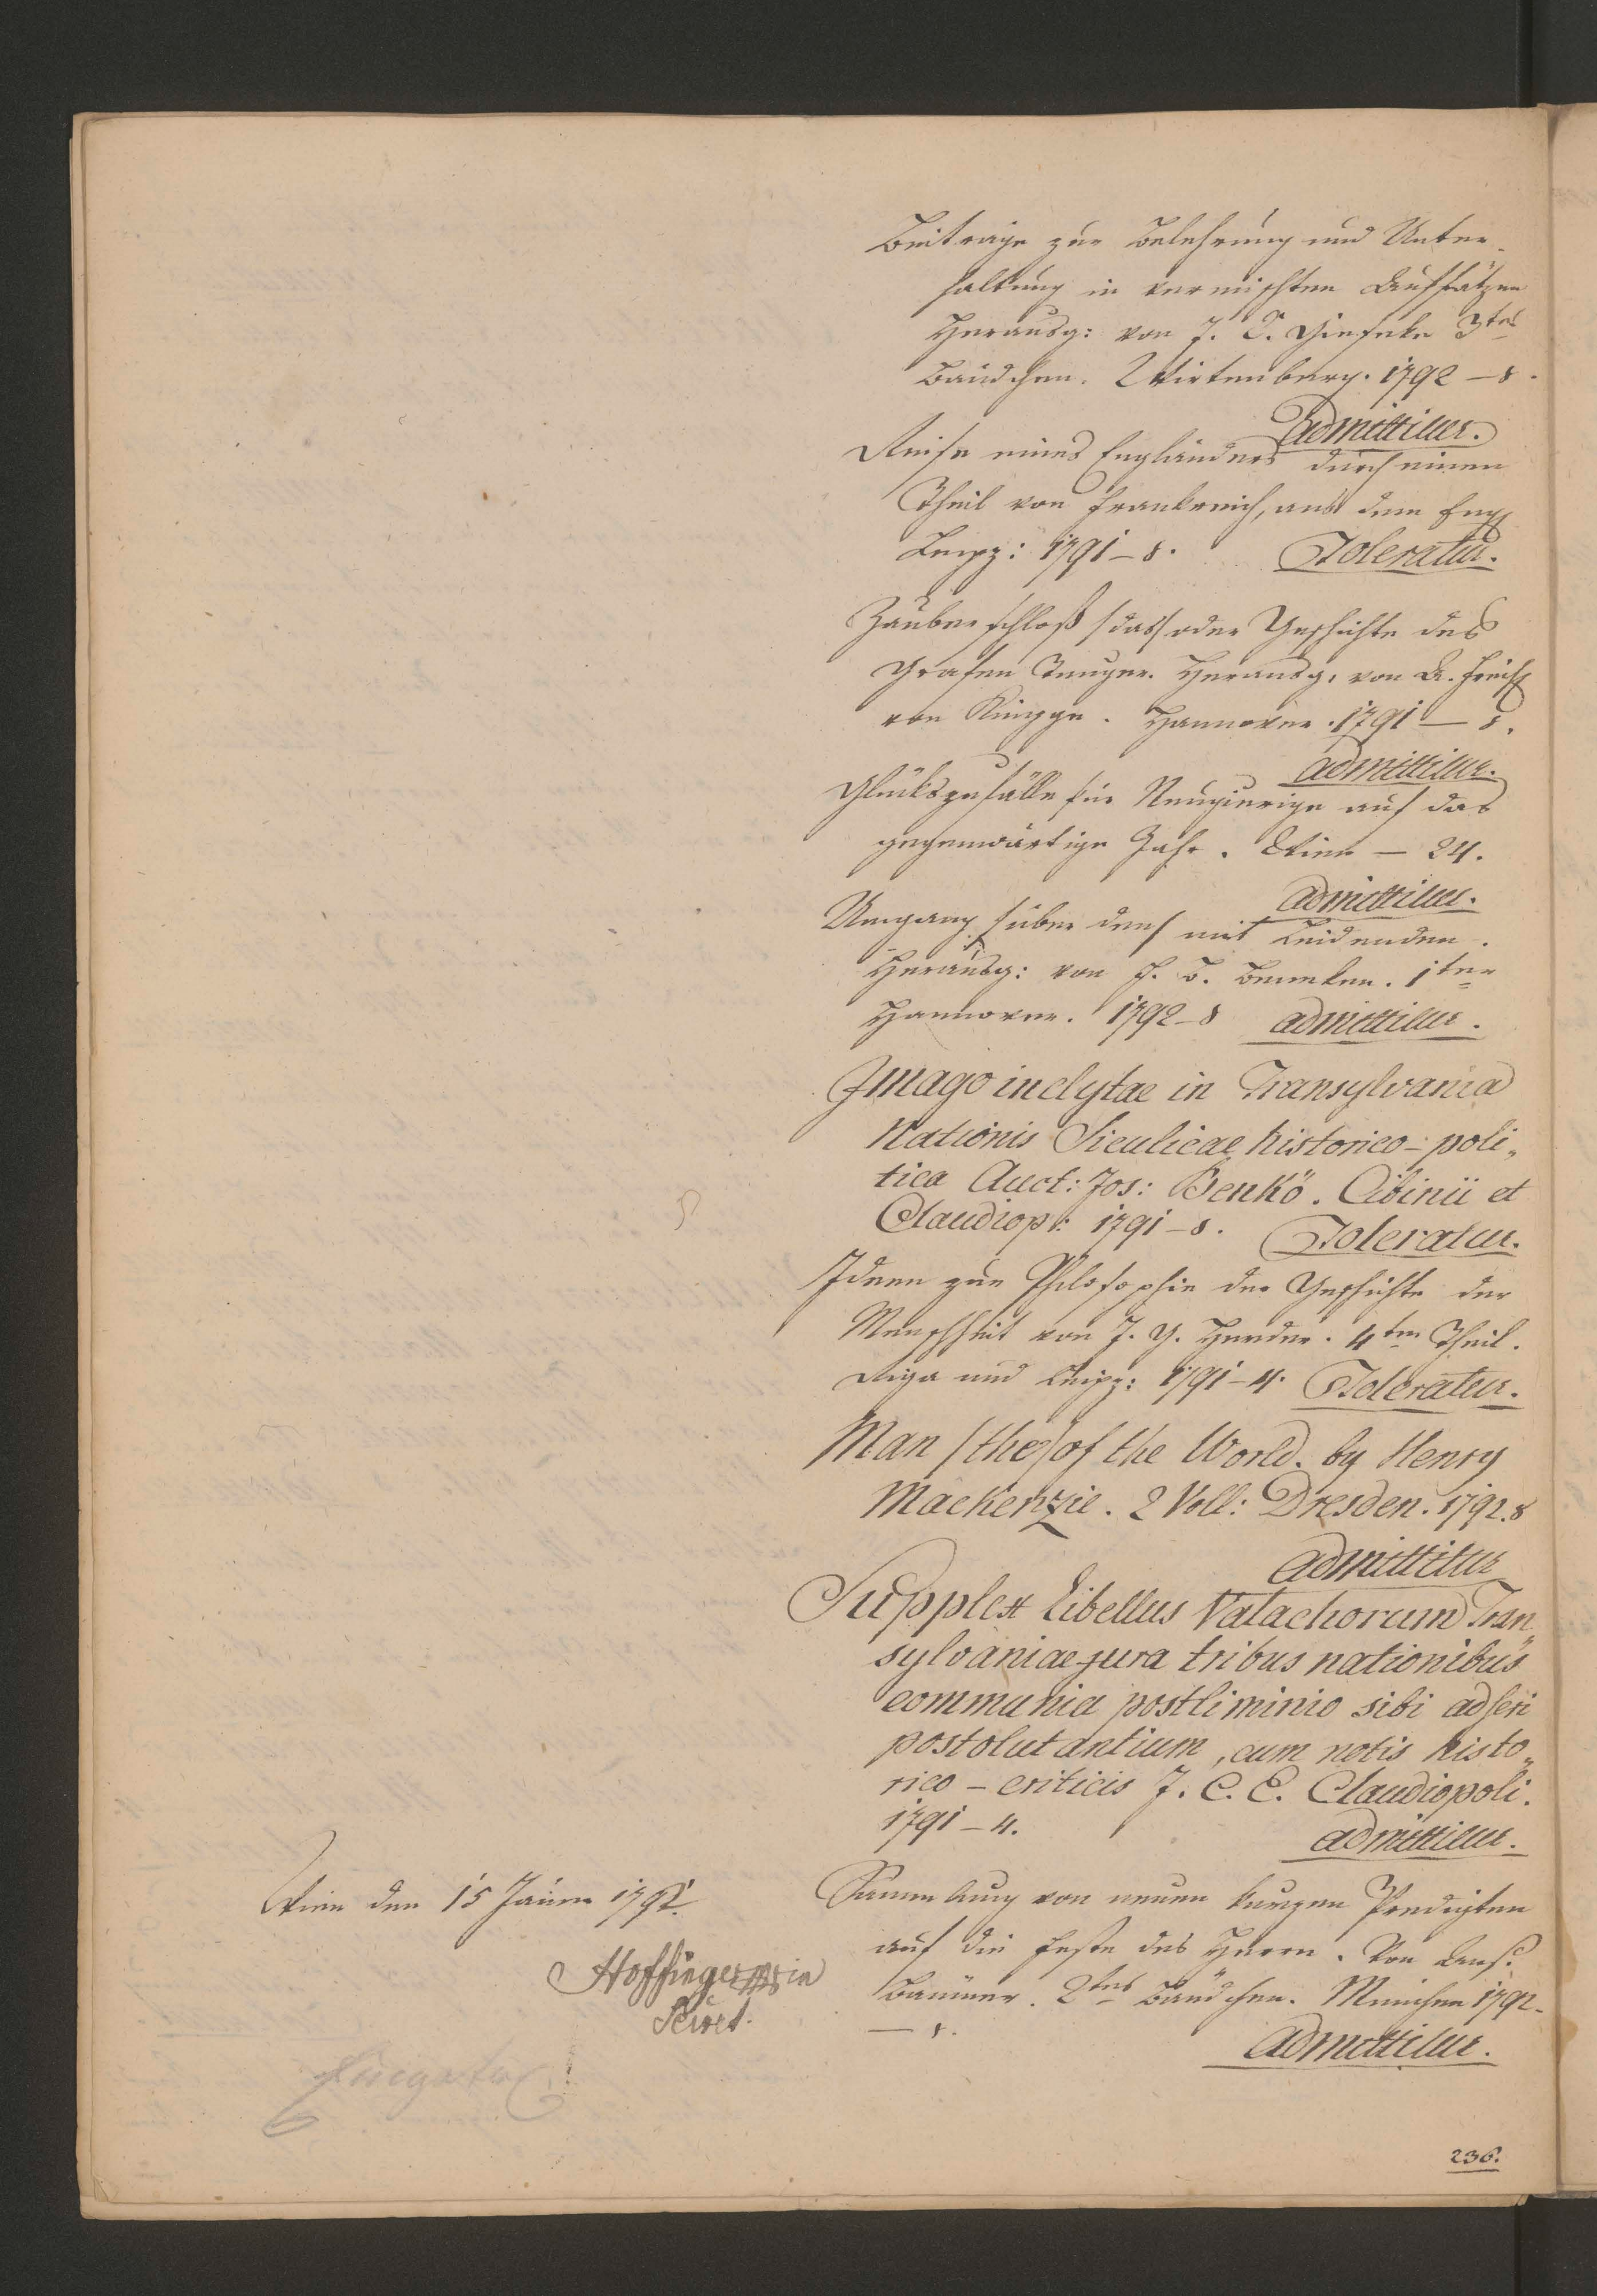 Beiträge zur Belehrung und Unter-
haltung in vermischten Aufsätzen
Herausg: von J. C. Giesecke 3tes
Bändchen. Wirtenberg. 1792 – 8.
Admittitur.
Reise eines Engländers durch einen
Theil von Frankreich, aus dem Eng
Leipz: 1791 – 8. Toleratur.
Zauberschloß /das/ oder Geschichte des
Grafen Tunger. Herausg. von A. Freih
von Knigge. Hannover. 1791 – 8.
admittitur.
Glückszufälle für Neugierige auf das
gegenwärtige Jahr. Wien – 24.
admittitur.
Umgang /über den/ mit Leidenden.
Herausg: von H. B. 1ter
Hannover. 1792 – 8 admittitur.
Imago inclytae in Transylvania
Nationis Siculicae historico-poli„
tica Auct: Jos: Benkö. Cibinii et
Claudiop: 1791 – 8. Toleratur.
Ideen zur Philosophie der Geschichte der
Menschheit von J. G. Herder. 4ter Theil.
Riga und Leipz: 1791 – 4. Toleratur.
Man /the/ of the World. by Henry
Mackenzie. 2 Voll: Dresden. 1792. 8
Admittitur
Supplex Libellus Valachorum Tran„
sylvaniae jura tribus nationibus
communia postliminio sibi adseri
postolutantium, cum notis histo„
rico – criticis J. C. E. Claudiopoli.
1791 – 4.
admittitur.
Sammlung von neuen kurzen Predigten
auf die Feste des Herrn. Von
2tes Bändchen. München 1792.
– 8.
Admittitur.
Wien den 15 Jäner 1792.
Hoffinger mpria
Secret.
236.